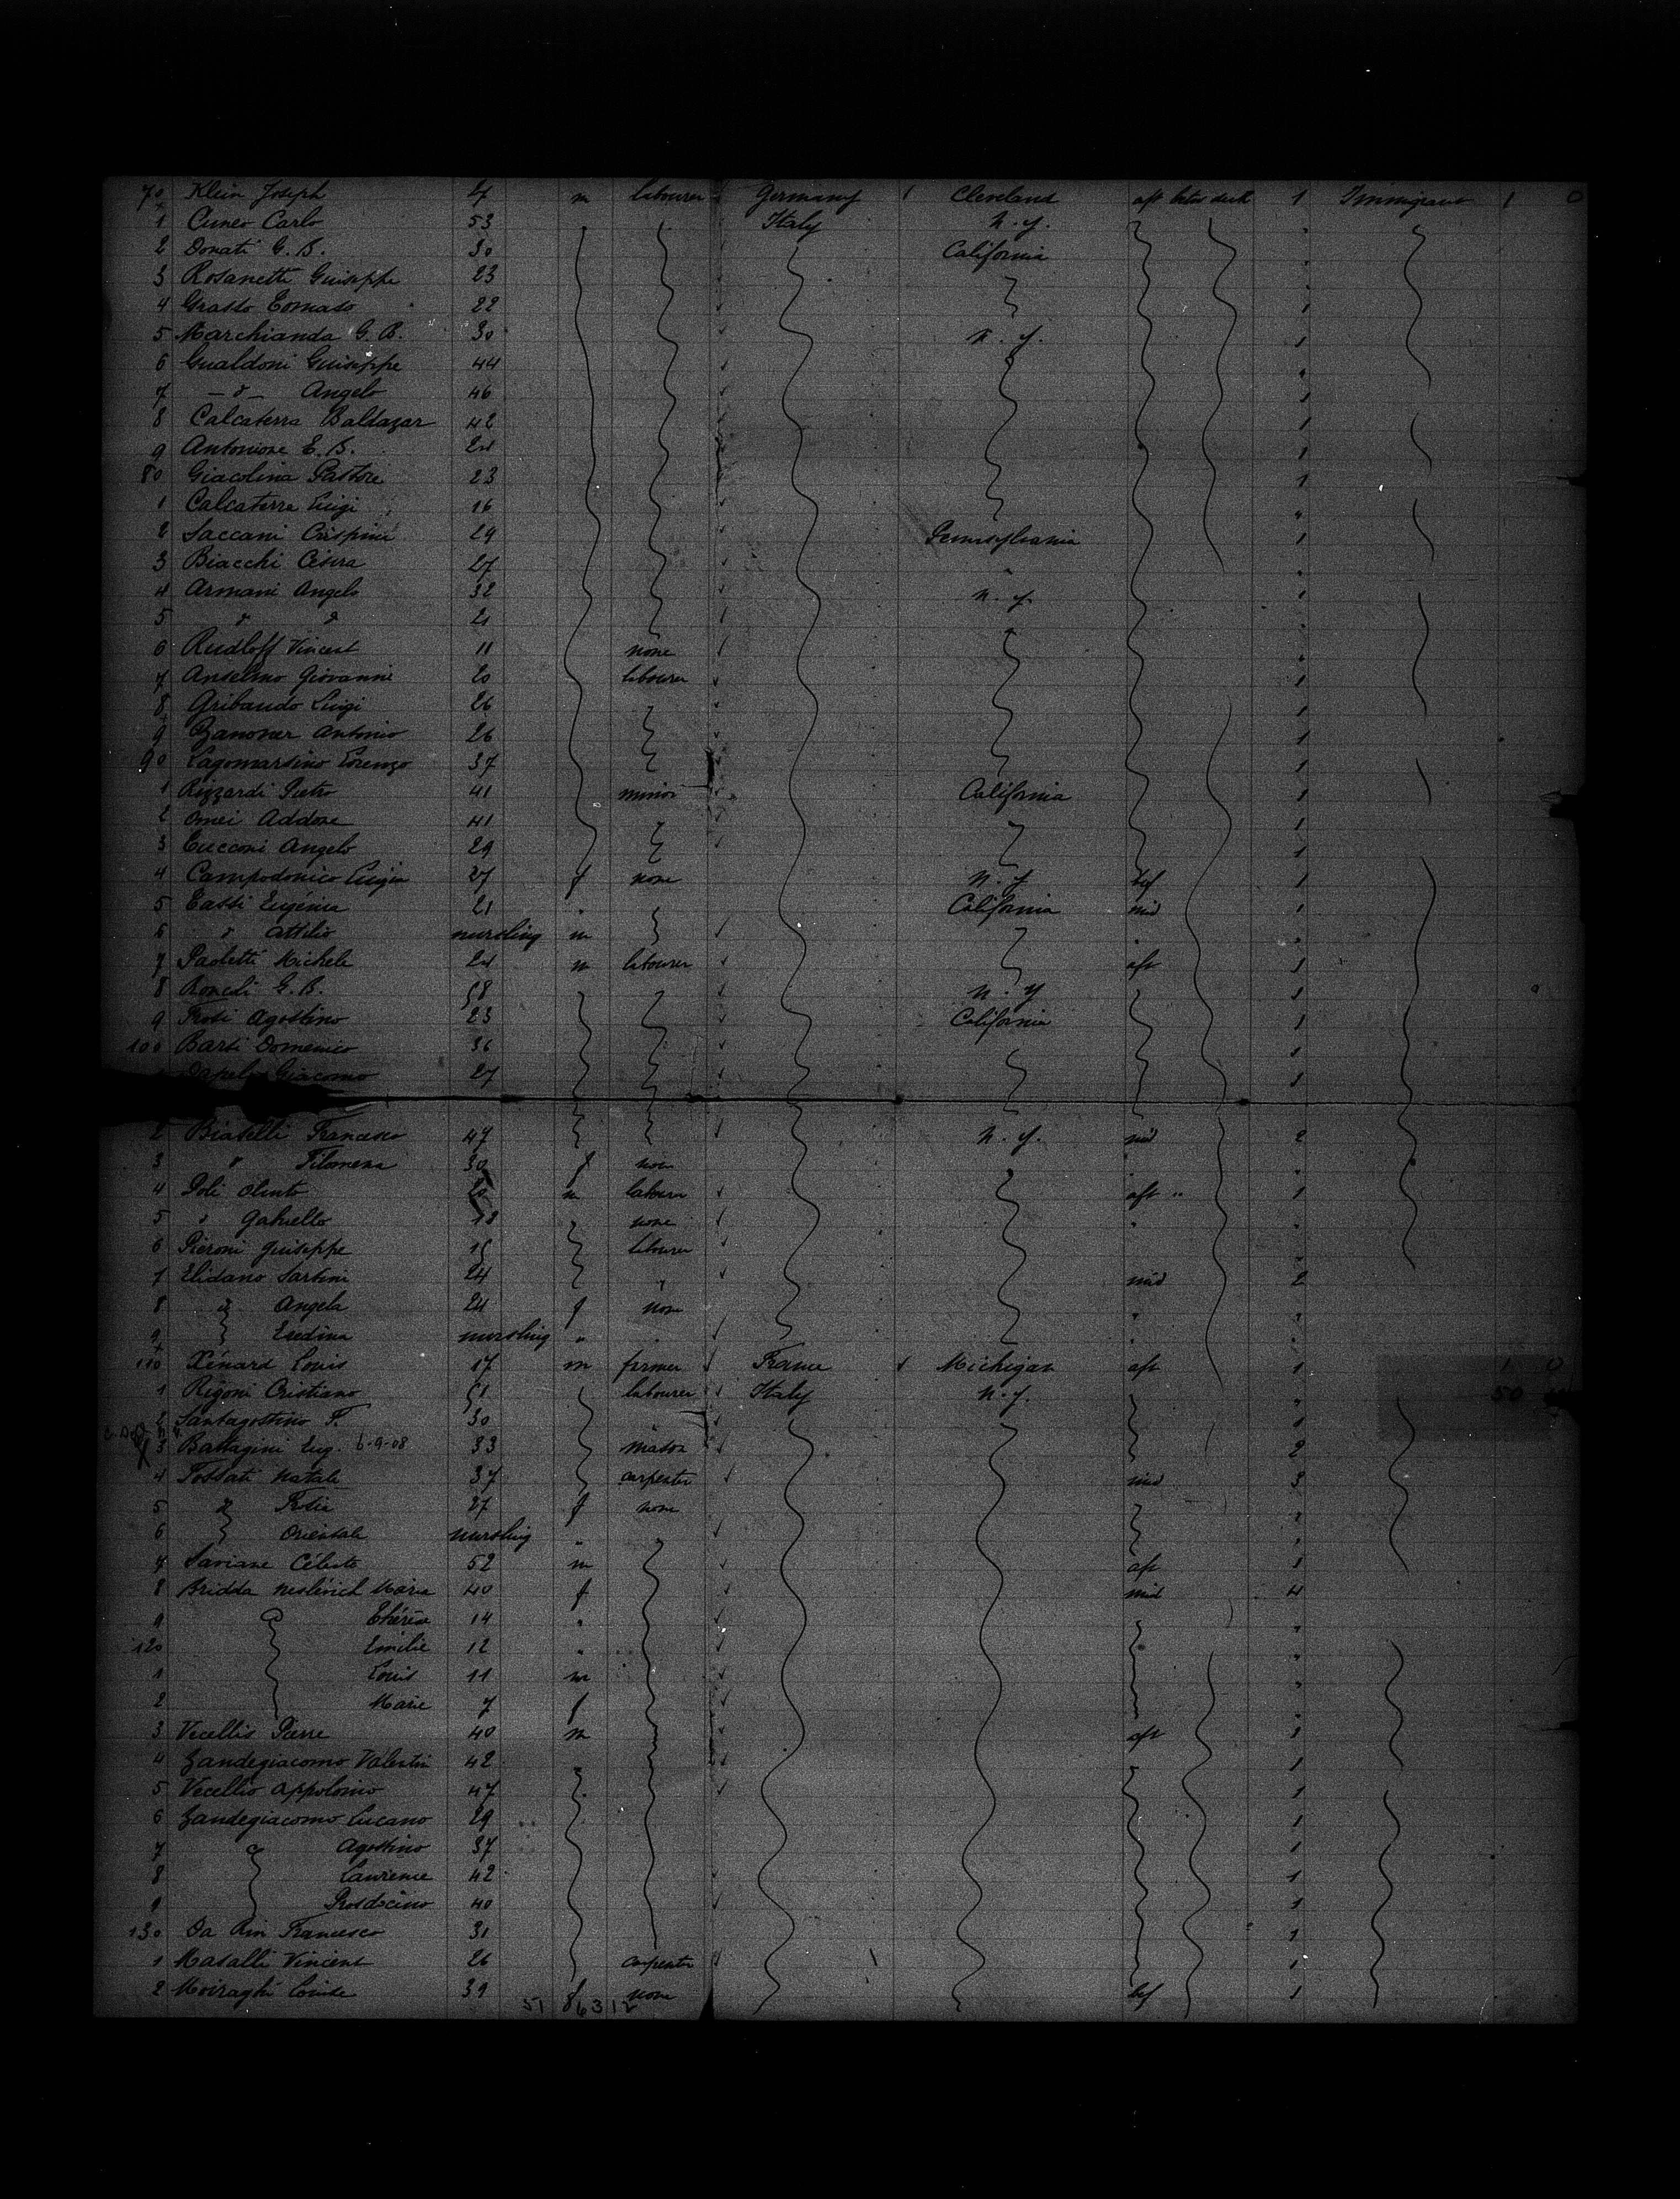 70 Klein Joseph m labourer Germany 1 Cleveland aft betw deck 1 Immigrant 1 0
1 Cuneo Carlo 53 Italy N. Y. "
2 Donati G. B. 30 California "
3 Rosanetti Guiseppe 23
4 Grasso Tomaso 22 1
5 Marchianda G. B. 30 N. Y. 1
6 Gualdoni Guiseppe 44
7 — d — Angelo 46 1
8 Calcaterra Baldazar 42 1
9 Antonione E. B. 24 1
80 Giacolina Pastore 23 1
1 Calcaterra Luigi 16 "
2 Saccani Crispini 29 Pennsylvania 1
3 Biacchi Cesira 27
4 Armani Angelo 32 N. Y. 1
5 " " 21
6 Rudloff Vincent 11 none
7 Anselmo Giovanni 20 labourer 1
8 Gribaudo Luigi 26 1
9 Zanoner Antonio 26 1
90 Lagomarsino Lorenzo 37 1
1 Rizzardi Pietro 41 minor California 1
2 Omei Addone 41 1
3 Cucconi Angelo 29 1
4 Campodonico Luigia 27 f none N. Y. bef 1
5 Tassi Eugénia 21 " California mid 1
6 " Attilio nursling m "
7 Paoletti Michele 24 m labourer aft 1
8 G. B. 58 N. Y 1
9 Frosi Agostino 23 California 1
100 Barsi Domenico 36 1
Giacomo 27 1
2 Biaselli Francesco 47 N. Y. mid 2
3 " Filomena 30 f none "
4 Poli Olinto 20 m labourer aft " 1
5 " Gabriello 18 none "
6 Pieroni Guiseppe 15 labourer
7 Elidano Sartini 24 " mid 2
8 " Angela 24 f none " "
9 Esedina nursling " " "
110 Xénard Louis 17 m farmer France 1 Michigan aft 1 1 0
1 Rigoni Cristiano 51 labourer Italy N. Y. " 50
2 Santagostino F. 30 1
3 Battagini Eug. 6-9-08 33 mason 2
4 Fossati Natale 37 carpenter mid 3
5 " 27 f none "
6 Orientale nursling " "
7 Saviane Céleste 52 m aft 1
8 Bridda Maria 40 f mid 4
9 Thérèse 14 " "
120 Emilie 12 " "
1 Louis 11 m "
2 Marie 7 f "
3 Vecellis Pierre 40 m aft 1
4 Zandegiacomo Valentin 42 1
5 Vecellio Appolonio 47 1
6 Zandegiacomo Lucano 29 1
7 Agostino 37 1
8 Laurence 42 1
9 Prosdocino 40 1
130 Da Rin Francesco 31 1
1 Masalli Vincent 26 carpenter 1
2 Moiraghi Louise 39 f none bef 1